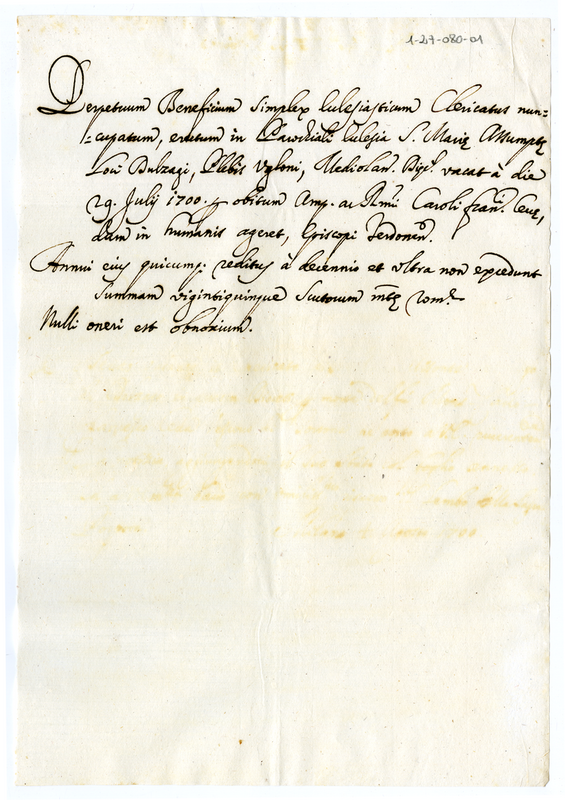 1-27-080-01
Perpetuum Beneficium Simplex Ecclesiasticum Clericatus nun=
=cupatum, erectum in Parochiali Ecclesia S. Marię Assumptę
Loci Bulzagi, Plebis Vgloni, Mediolan. Dięc. vacat à die
29. Julij 1700. p obitum Amp. ac Rmi Caroli Fran.
dum in humanis ageret, Episcopi Terdonen.
Annui eius quicumq; reditus à decennio et vltra non excedunt
summam vigintiquinque Scutorum mtę Rom.
Nulli oneri est obnoxium.